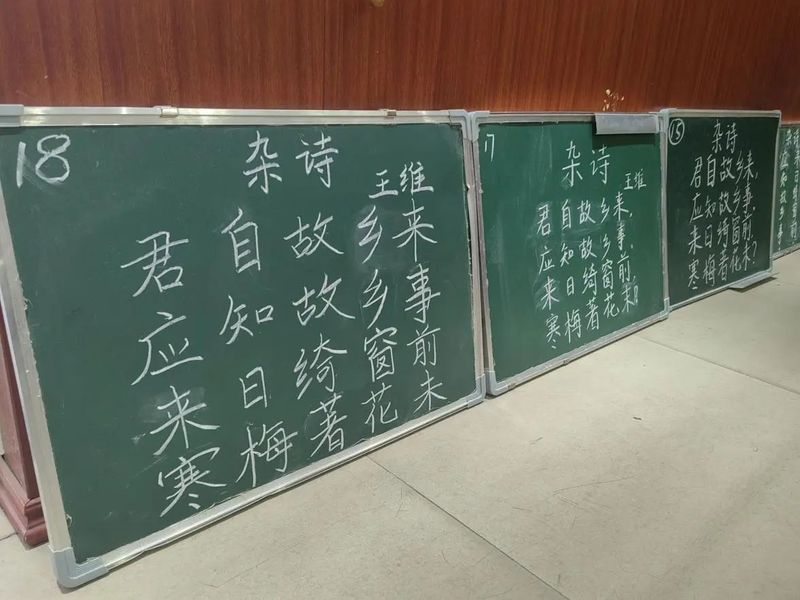 18
杂诗
王维
君自故乡来
应知故乡事
来日绮窗前
寒梅著花未
17
杂诗
王维
君自故乡来，
应知故乡事。
来日绮窗前，
寒梅著花未？
⑮
杂诗
君自故乡来，
应知故乡事
来日绮窗前
寒梅著花未？
应知故乡事